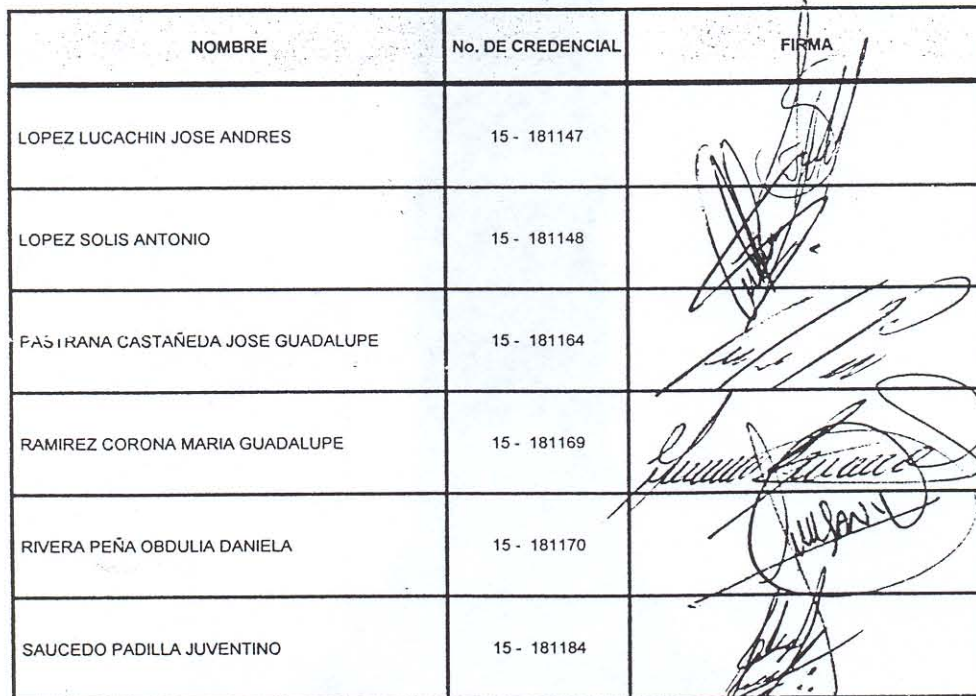 NOMBRE No. DE CREDENCIAL FIRMA
LOPEZ LUCACHIN JOSE ANDRES 15 - 181147
LOPEZ SOLIS ANTONIO 15 - 181148
PASTRANA CASTAÑEDA JOSE GUADALUPE 15 - 181164
RAMIREZ CORONA MARIA GUADALUPE 15 - 181169
RIVERA PEÑA OBDULIA DANIELA 15 - 181170
SAUCEDO PADILLA JUVENTINO 15 - 181184